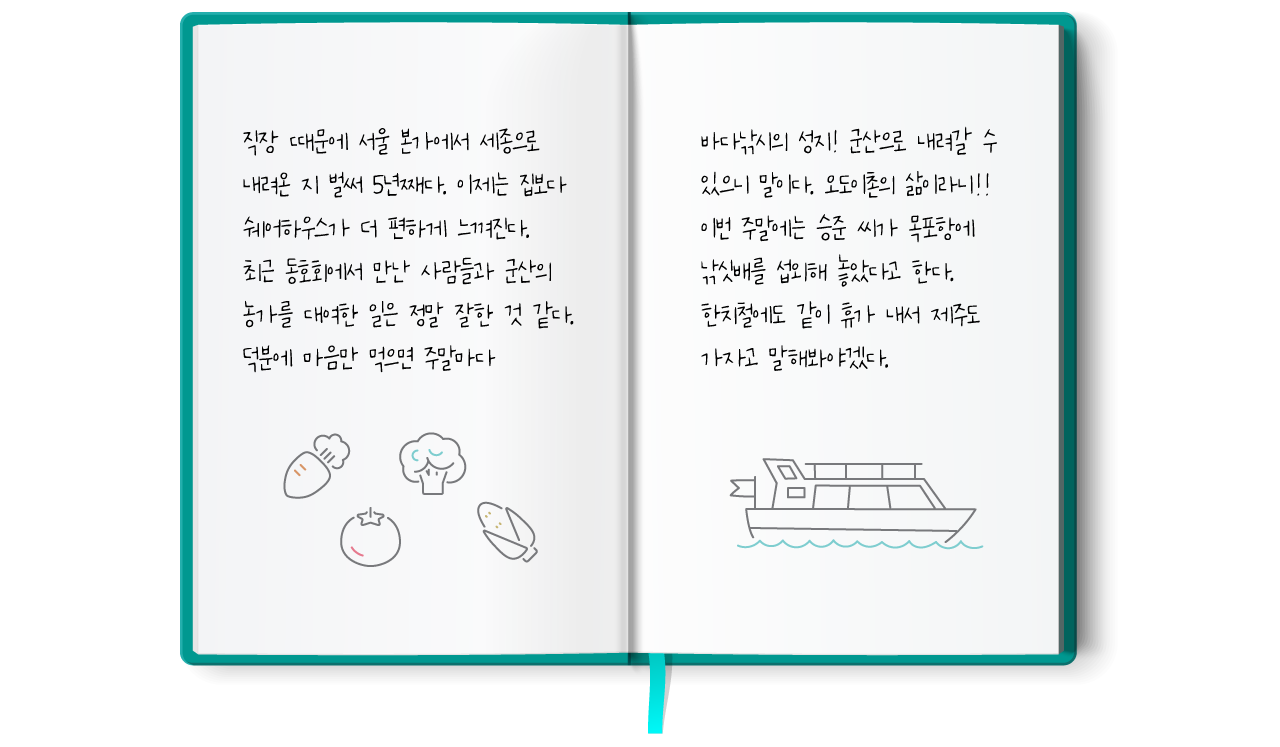 직장 때문에 서울 본가에서 세종으로
내려온 지 벌써 5년째다. 이제는 집보다
쉐어하우스가 더 편하게 느껴진다.
최근 동호회에서 만난 사람들과 군산의
농가를 대여한 일은 정말 잘한 것 같다.
덕분에 마음만 먹으면 주말마다
바다낚시의 성지! 군산으로 내려갈 수
있으니 말이다. 오도이촌의 삶이라니!!
이번 주말에는 승준 씨가 목포항에
낚싯배를 섭외해 놓았다고 한다.
한치철에도 같이 휴가 내서 제주도
가자고 말해봐야겠다.